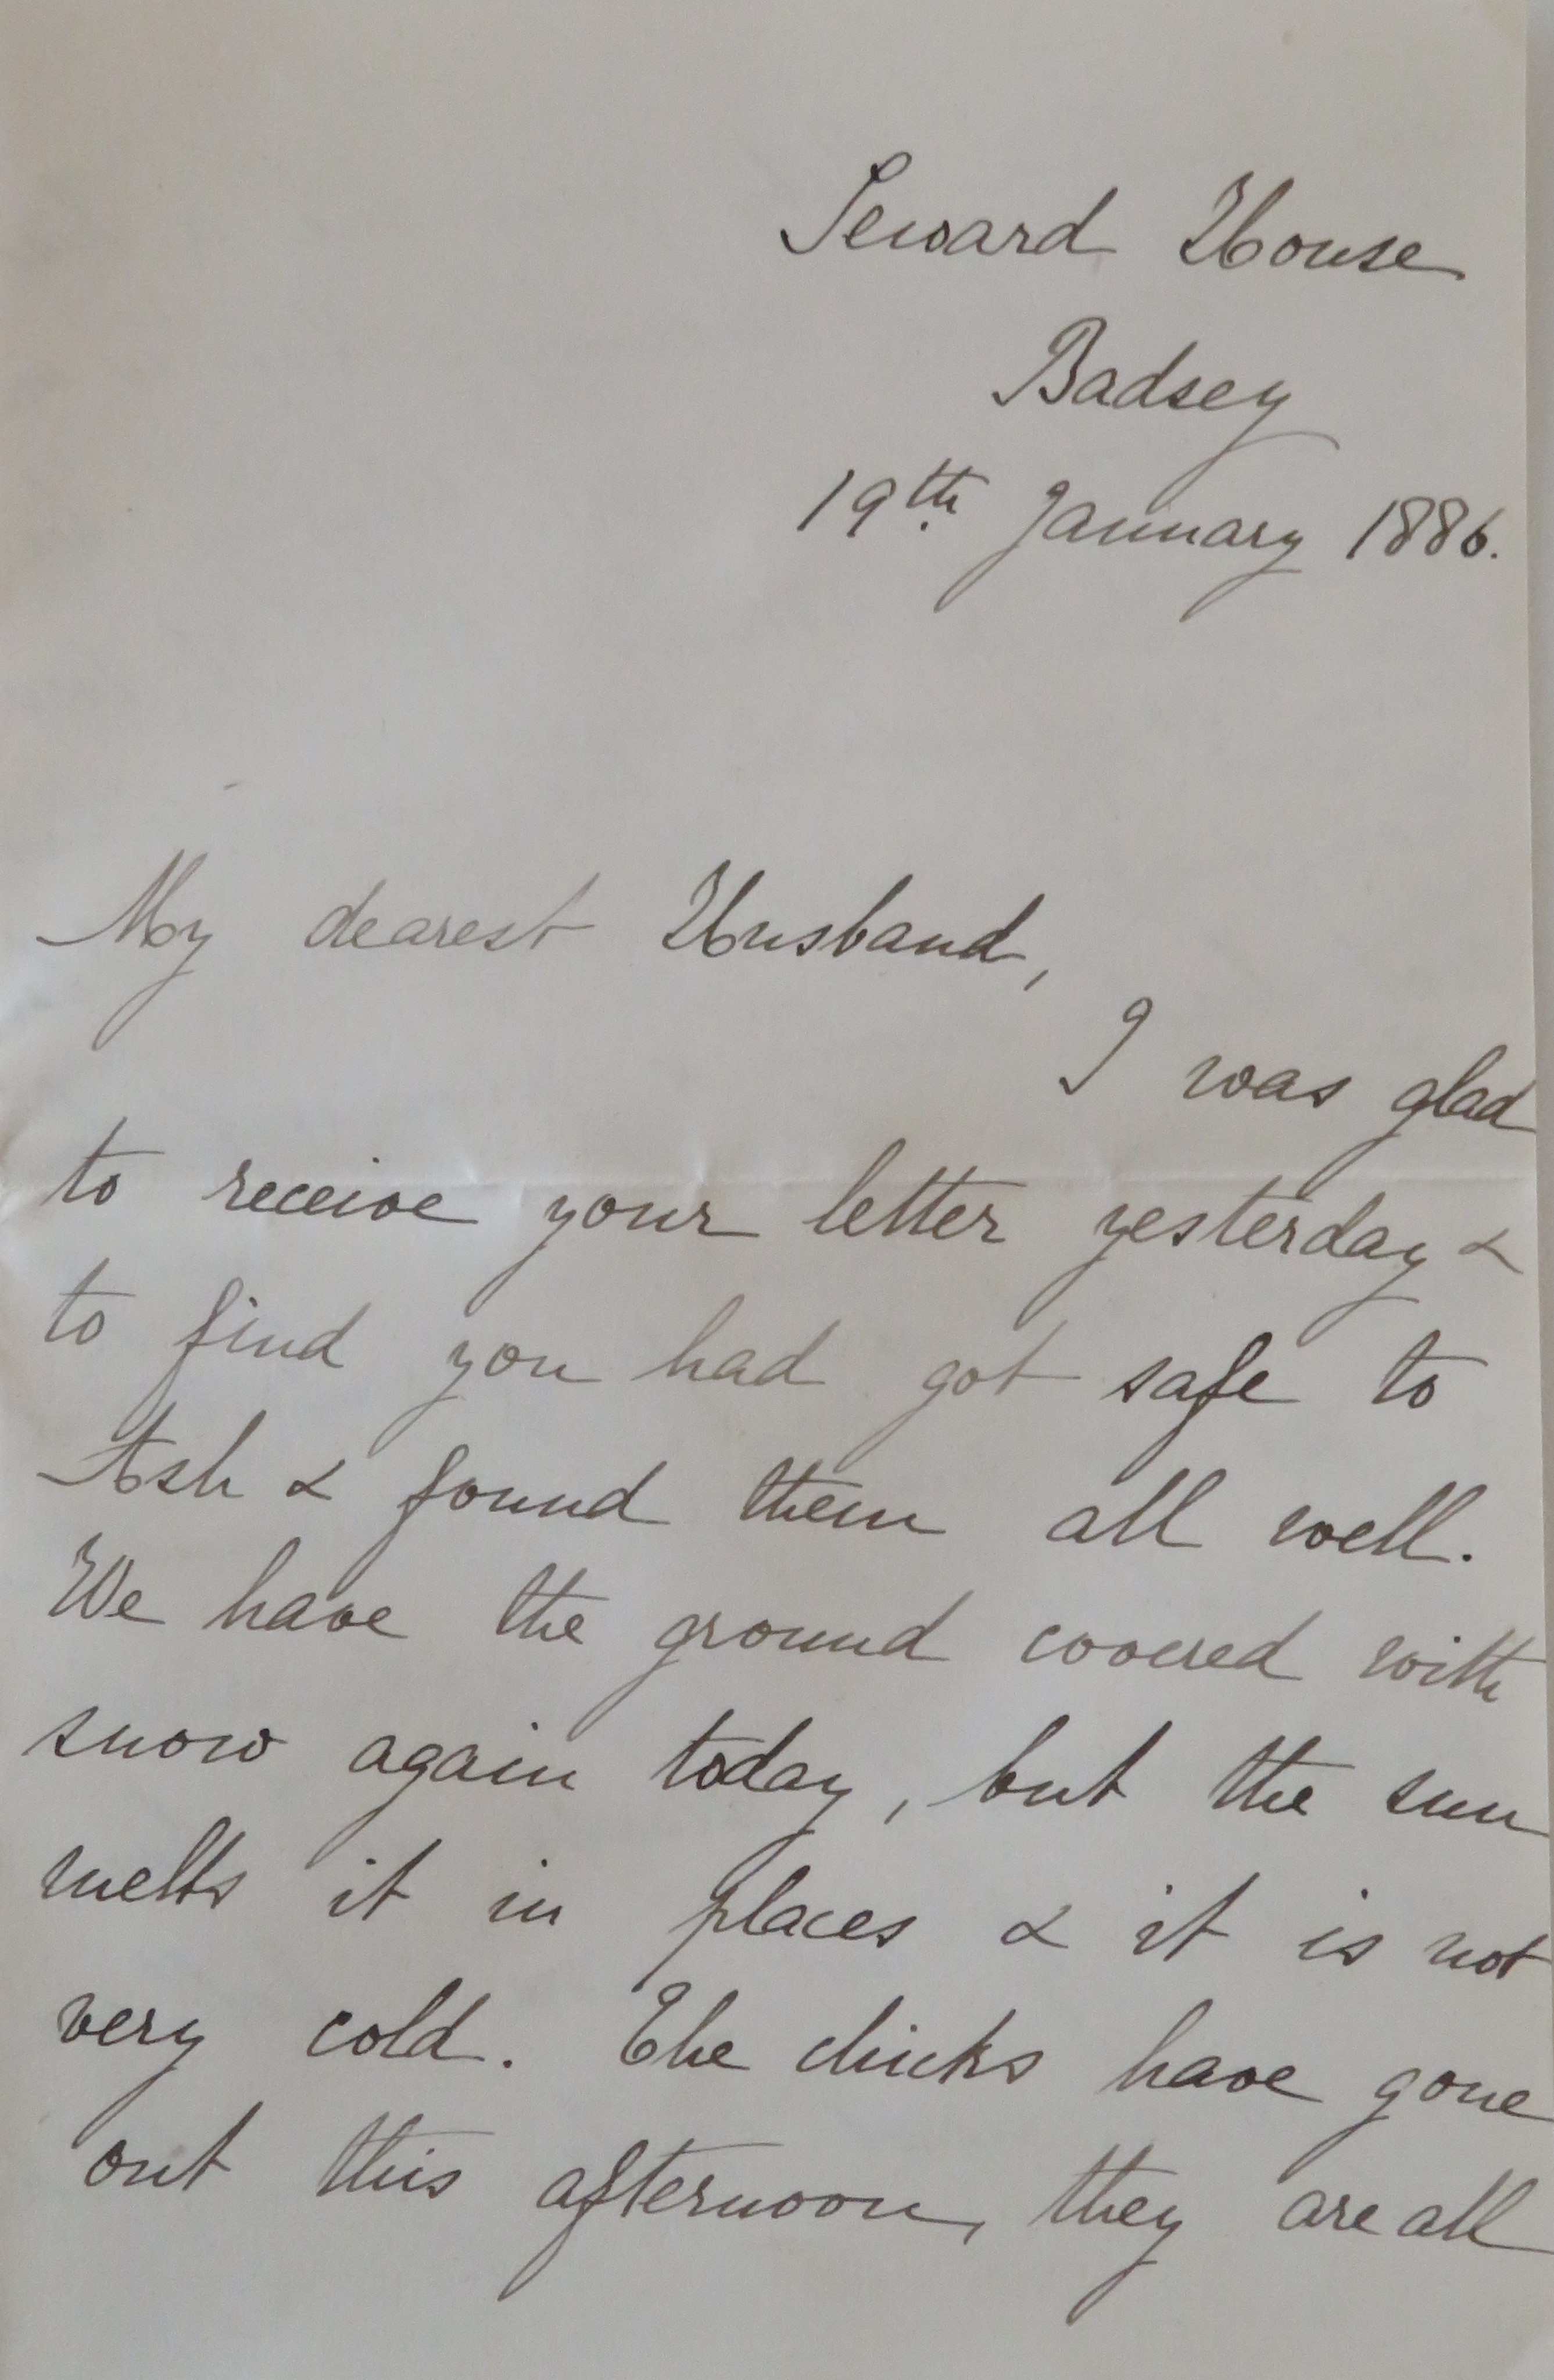 Seward House
Badsey
19th January 1886.
My dearest Husband,
I was glad
to receive your letter yesterday &
to find you had got safe to
Ash & found them all well.
We have the ground covered with
snow again today, but the sun
melts it in places & it is not
very cold. The chicks have gone
out this afternoon, they are all